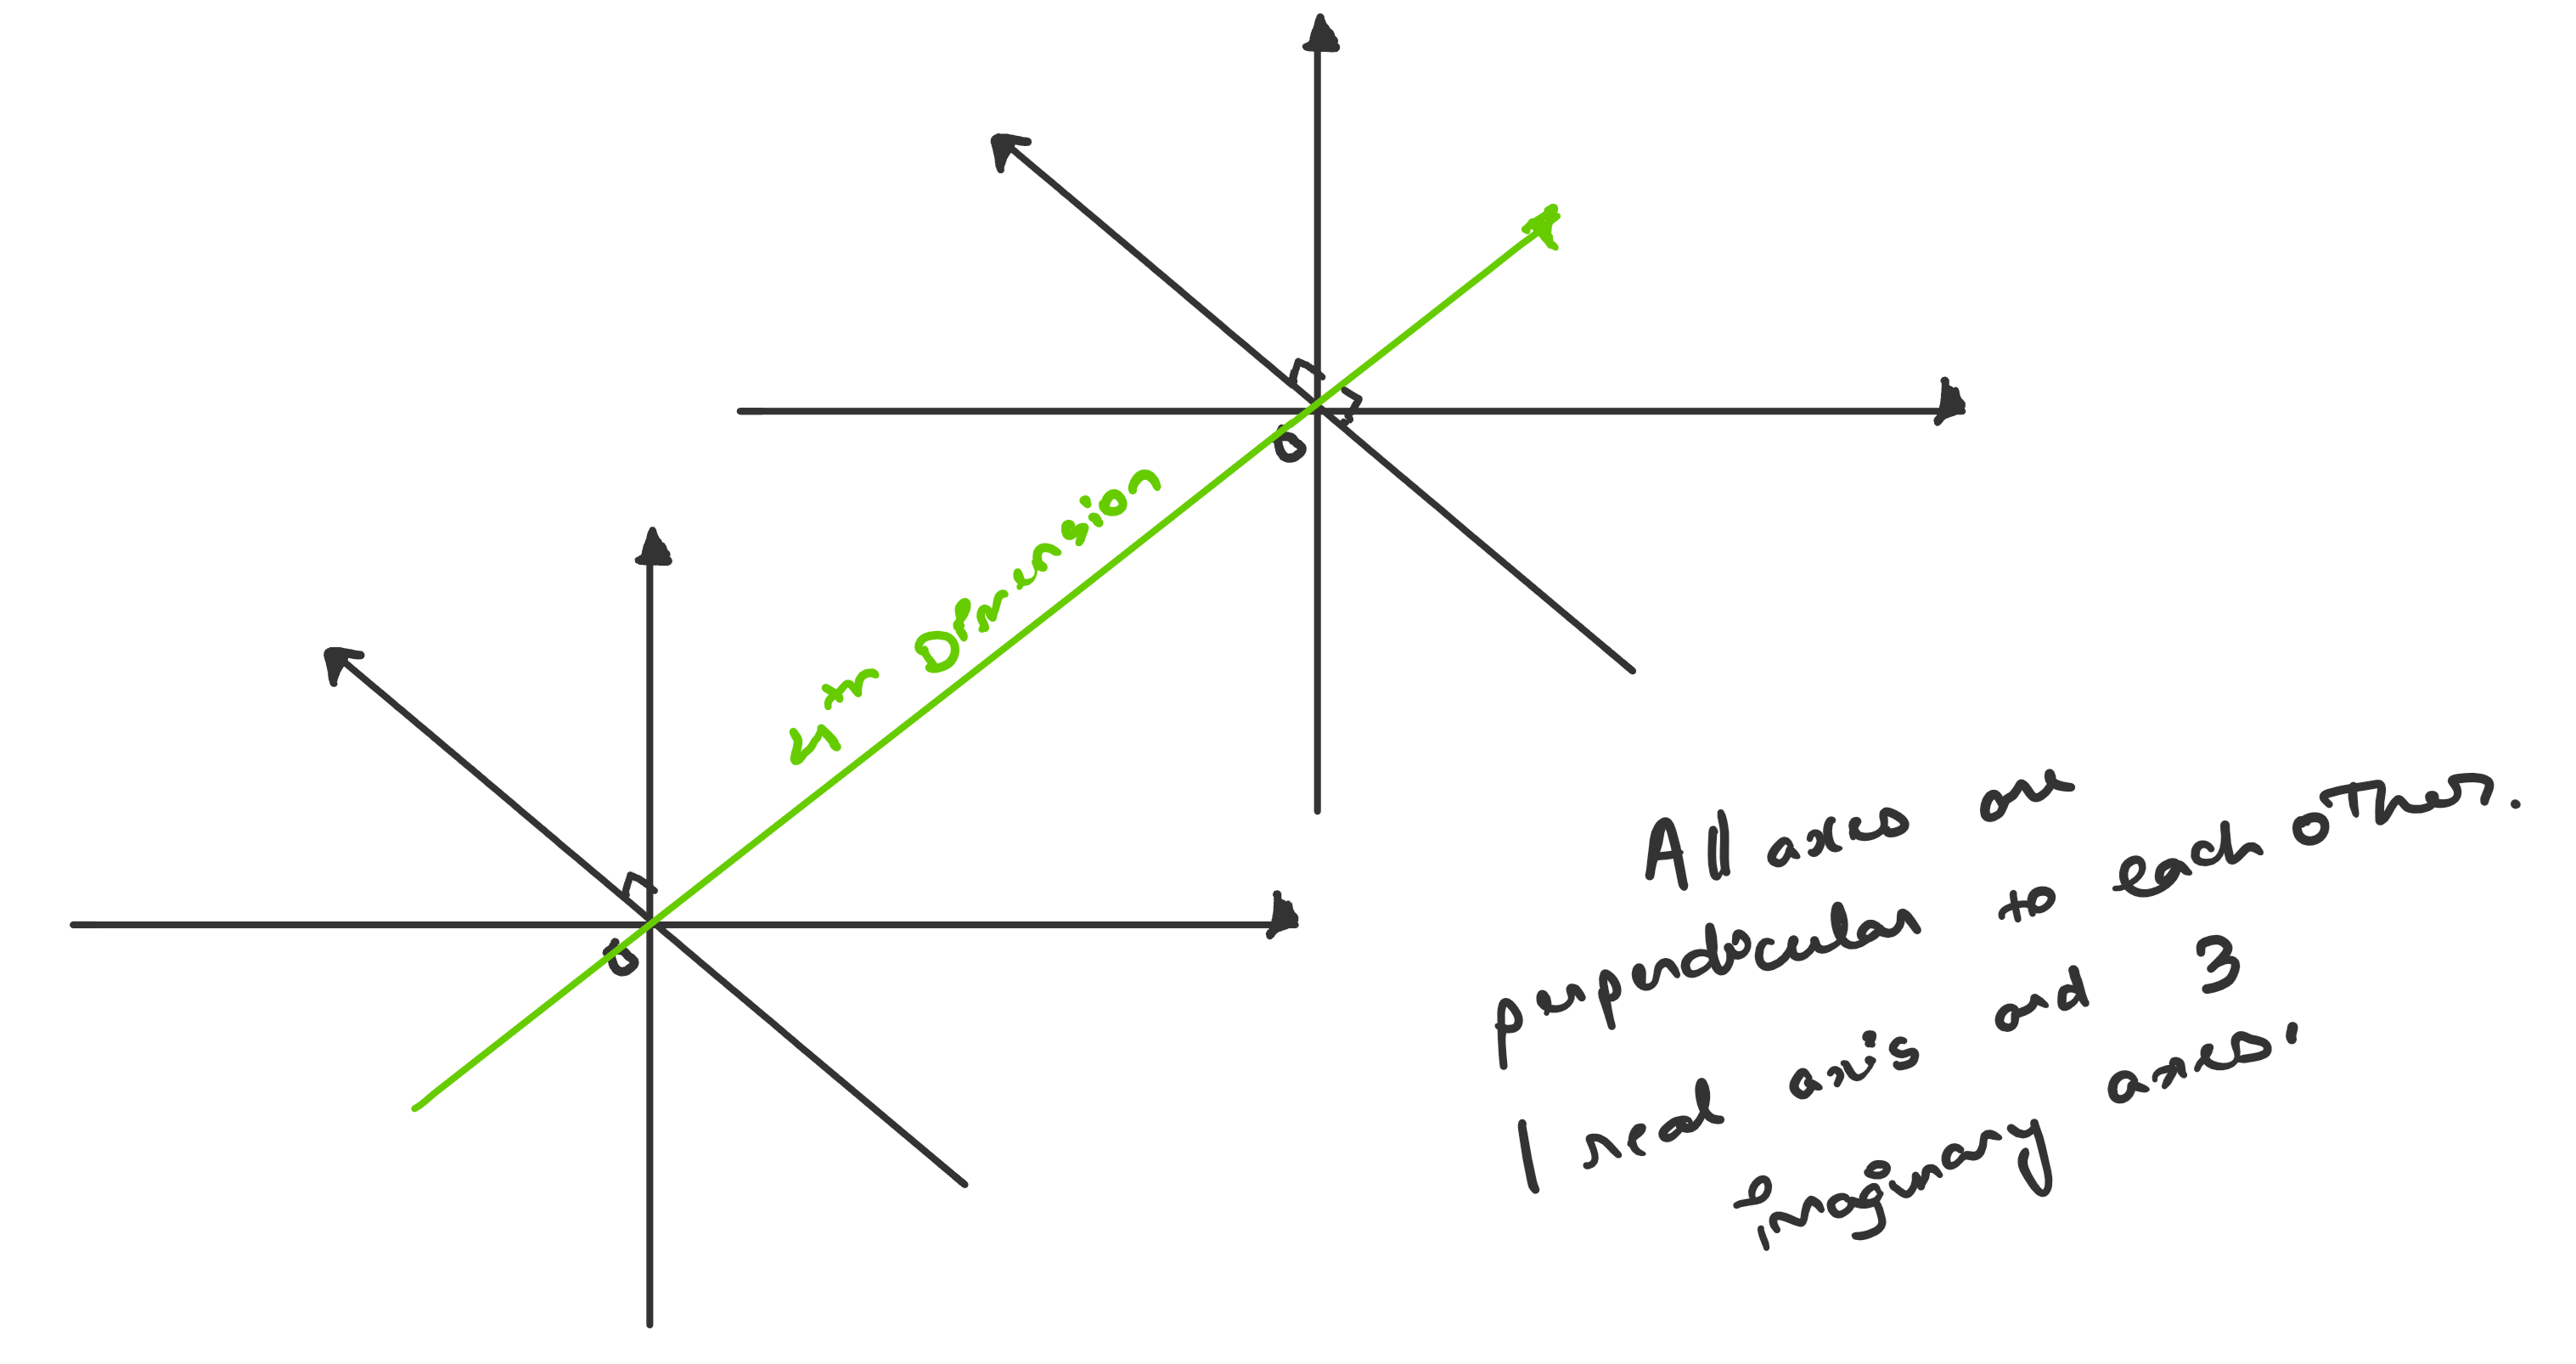 4th Dimension
All axes are
perpendicular to each other.
1 real axis and 3
imaginary axes.